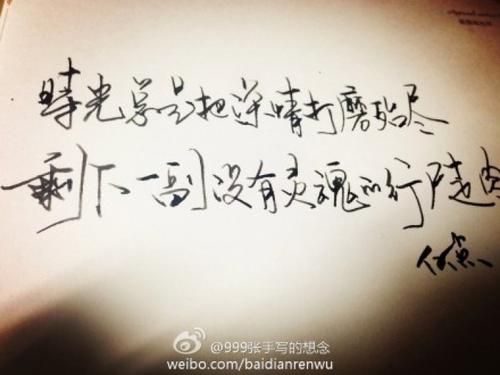 時光总是把深情打磨殆尽
剩下一副没有灵魂的行尸走肉
@999张手写的想念
weibo.com/baidianrenwu